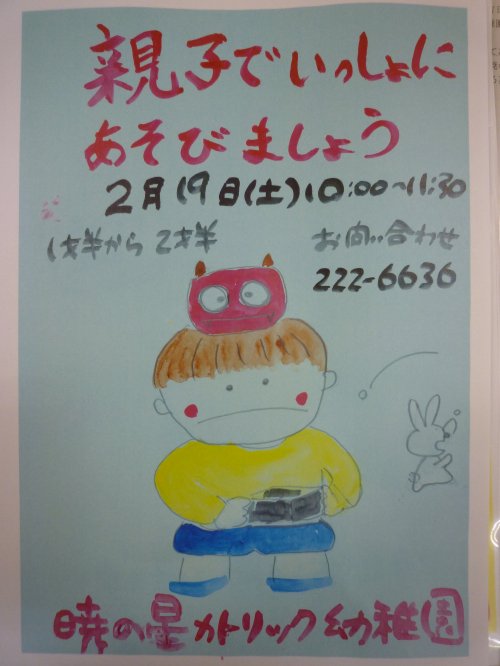 親子でいっしょに
あそびましょう
2月19日(土)10:00~11:30
1才半から 2才半
お問い合わせ
222-6636
暁の星カトリック幼稚園